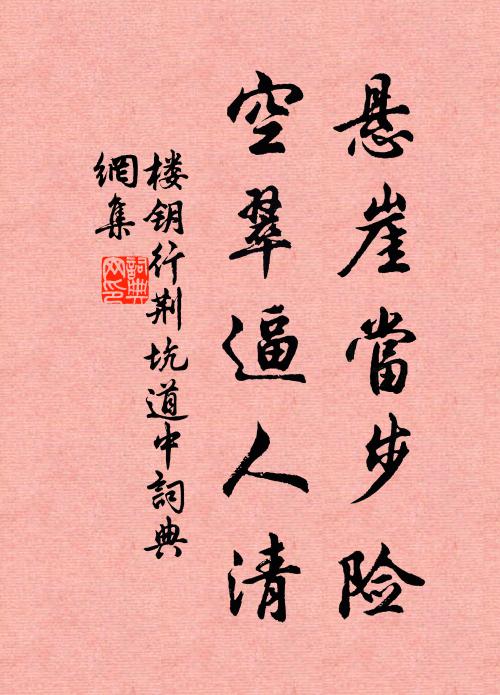 悬崖當步险
空翠逼人清
楼钥行荆坑道中詞典
網集
詞典網印